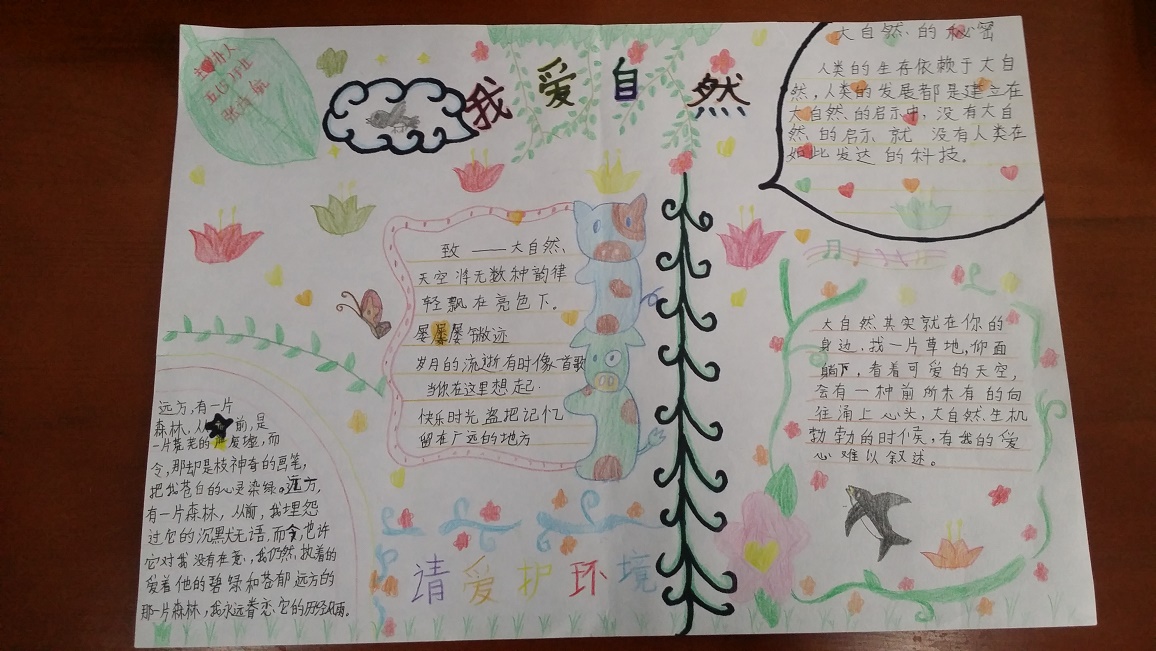 主办人
五(2)班
我爱自然
大自然的秘密
人类的生存依赖于大自
然，人类的发展都是建立在
大自然的启示中，没有大自
然的启示就 没有人类在
如此发达的科技。
致 ——大自然
天空将无数种韵律
轻飘在亮色下。
屡屡屡
岁月的流逝有时像首歌
当你在这里想起
快乐时光 盗把记忆
留在广远的地方
大自然其实就在你的
身边，找一片草地，仰面
躺下，看着可爱的天空，
会有一种前所未有的向
往涌上心头，大自然生机
勃勃的时候，有我的爱
心难以叙述。
远方，有一片
森林，从前，是
一片荒芜的废墟，而
令，那却是枝神奇的画笔，
把我苍白的心灵染绿。远方，
有一片森林，从前，我埋怨
过它的沉默无语，而今，也许
它对我没有在意，我仍然执着的
爱着他的碧绿和苍郁远方的
那一片森林，我永远眷恋它的历经风雨。
请爱护环境